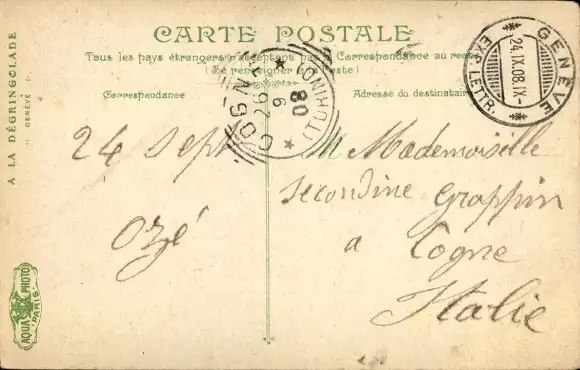 CARTE POSTALE
Tous les pays étrangers n'acceptent pas la Correspondance au recto
(Se renseigner à la Poste)
Correspondance
Adresse du destinataire
A LA DÉGRINGOLADE
GENÈVE
GENÈVE
24.IX.08.IX-
EXP. LETTR.
COGNE
26 9 08
24 Sept
Ozé
Mademoiselle
Secondine Grappin
a Cogne
Italie
AQUA PHOTO
PARIS